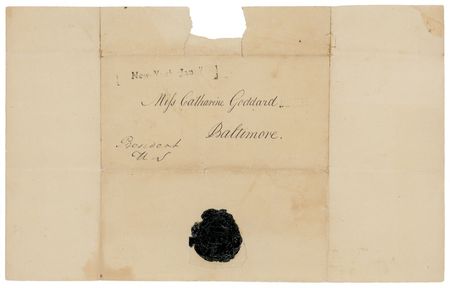 [ New-York Jan
Miss Catharine Goddard
Baltimore.
President
U S